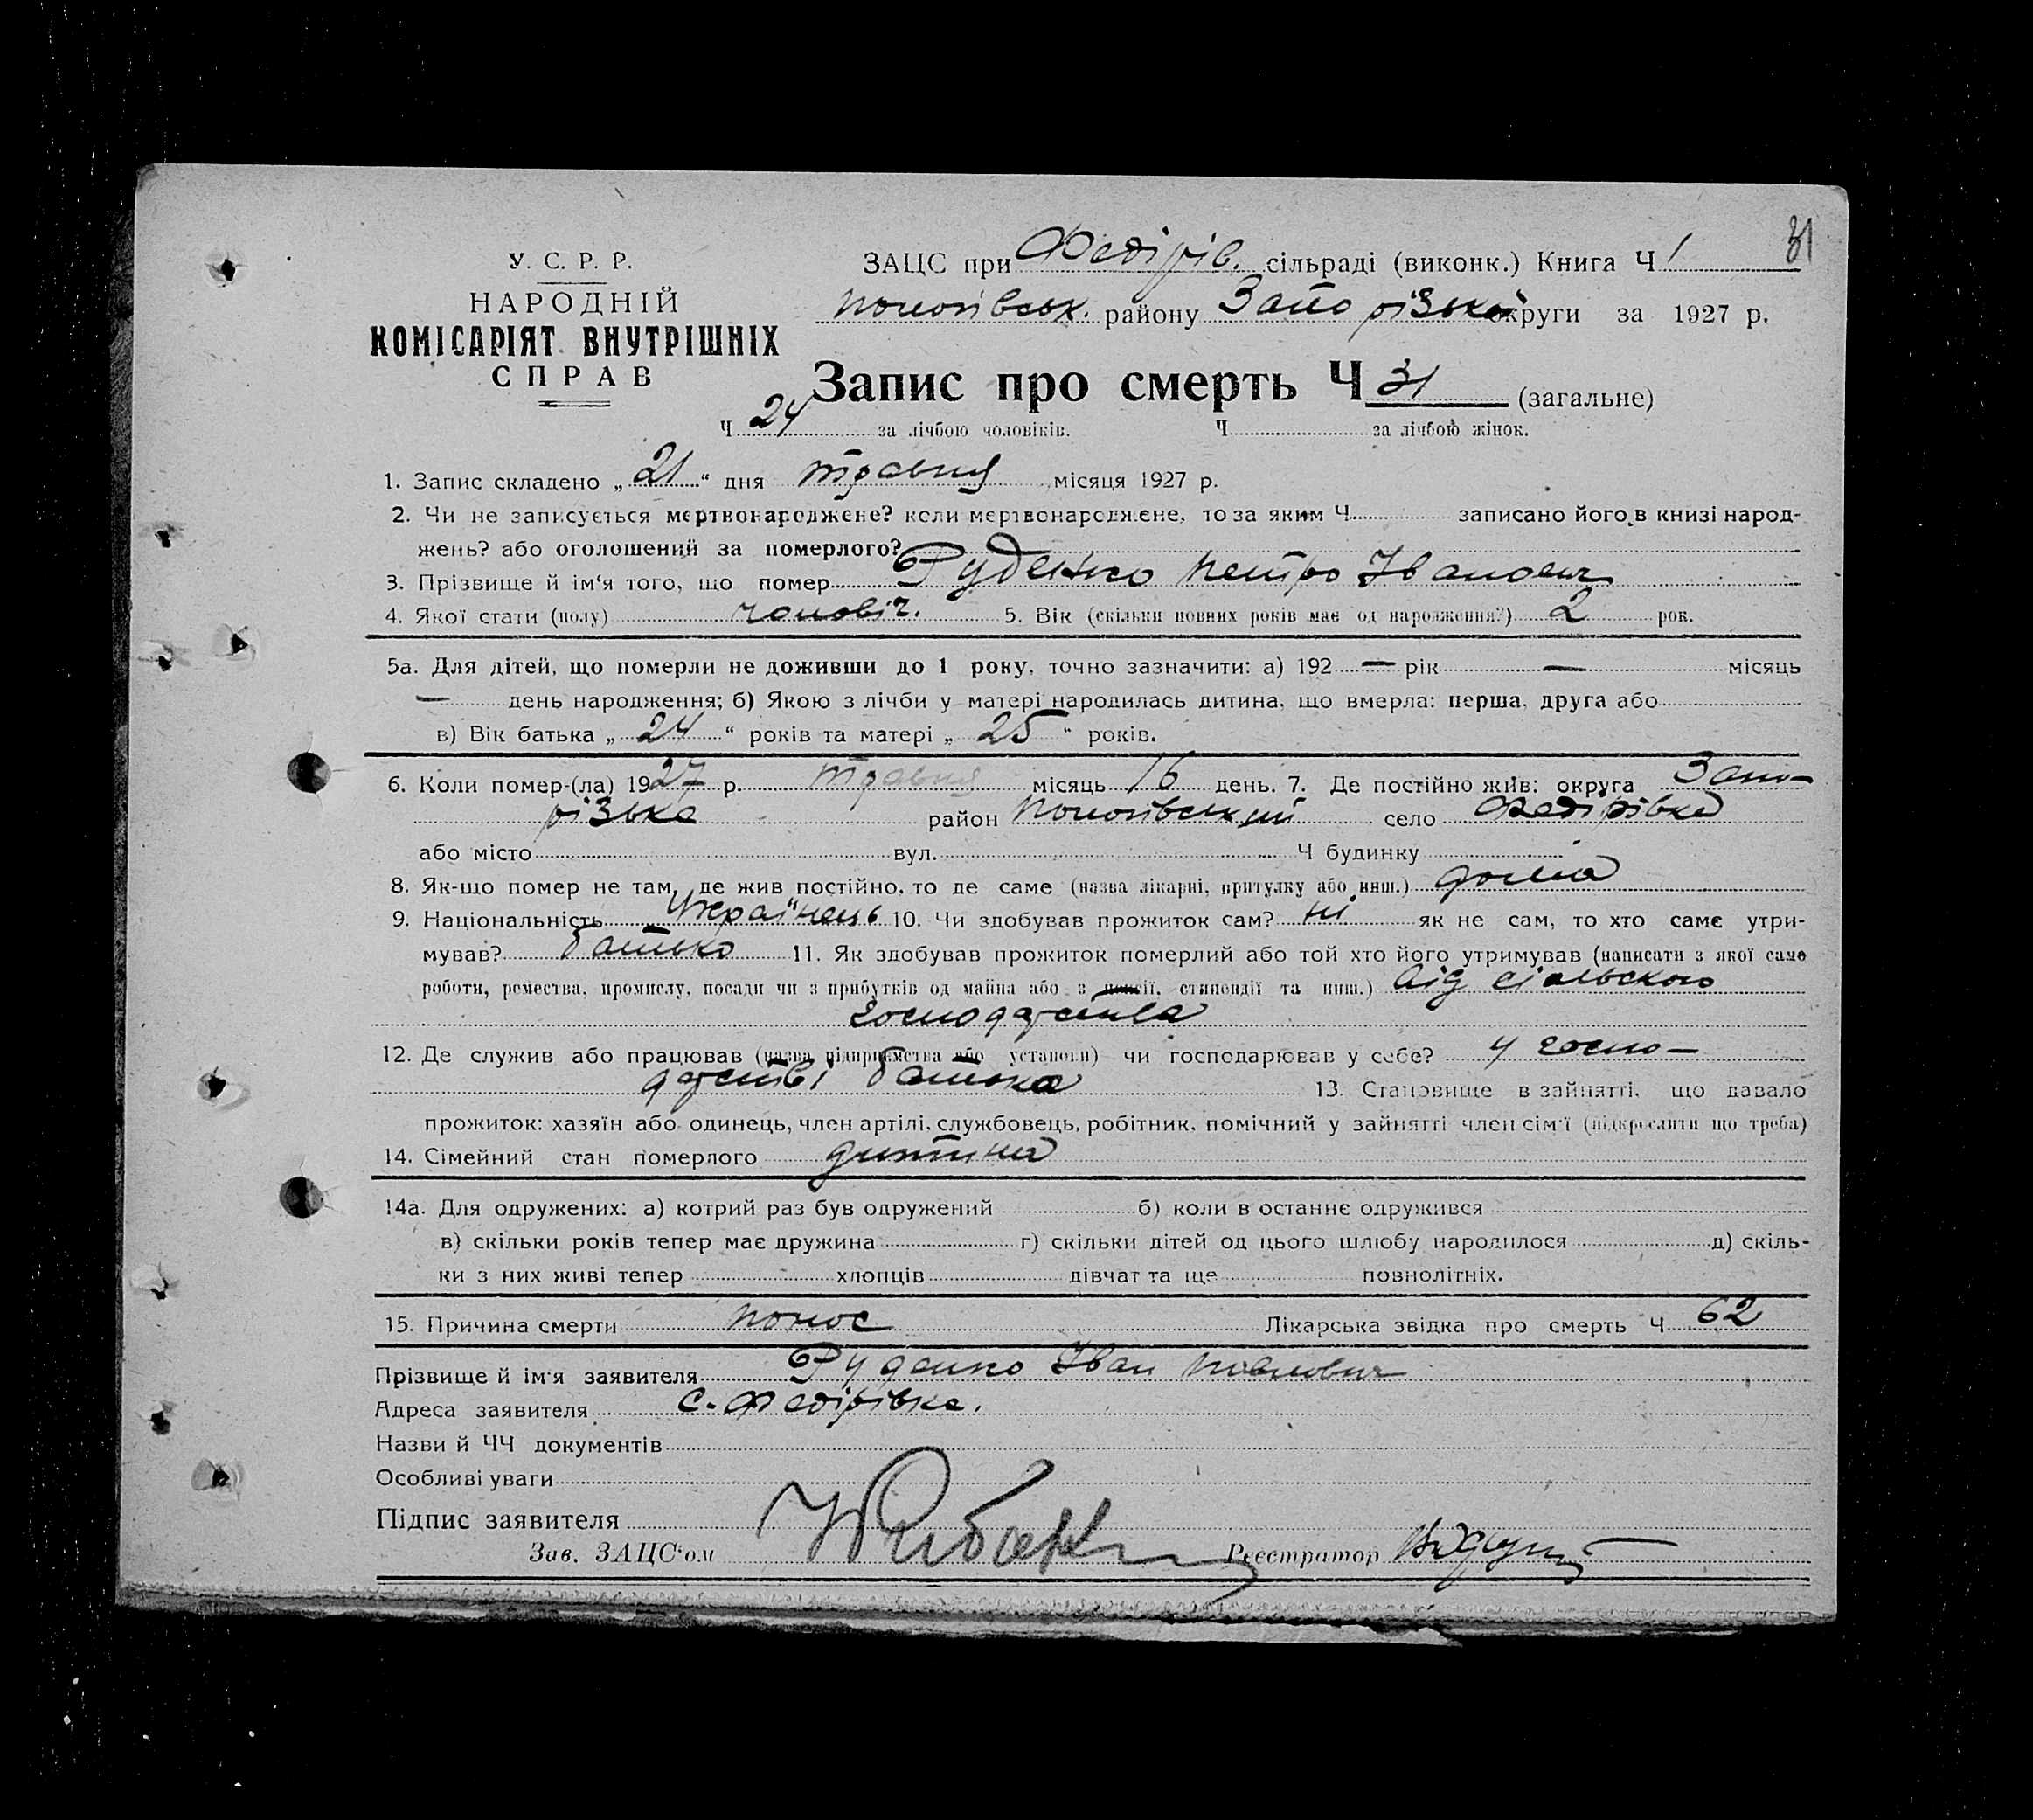 31
У. С. Р. Р.
НАРОДНІЙ
КОМІСАРІЯТ ВНУТРІШНІХ
СПРАВ
ЗАЦС при Федірів. сільраді (виконк.) Книга Ч 1
Пологівськ. району Запорізької округи за 1927 р.
Запис про смерть Ч 31 (загальне)
Ч 24 за лічбою чоловіків. Ч за лічбою жінок.
1. Запис складено „ 21 “ дня травня місяця 1927 р.
2. Чи не записується мертвонароджене? коли мертвонароджене, то за яким Ч. записано його в книзі народ-
жень? або оголошений за померлого?
3. Прізвище й ім‘я того, що помер Руденко Петро Іванович
4. Якої стати (полу) чоловіч. 5. Вік (скільки повних років має од народження?) 2 рок.
5а. Для дітей, що померли не доживши до 1 року, точно зазначити: а) 192 — рік — місяць
— день народження; б) Якою з лічби у матері народилась дитина, що вмерла: перша, друга або
в) Вік батька „ 24 “ років та матері „ 25 “ років.
6. Коли помер-(ла) 1927 р. травня місяць 16 день. 7. Де постійно жив: округа Запо-
різька район Пологівський село Федірівка
або місто вул. Ч будинку
8. Як-що помер не там, де жив постійно, то де саме (назва лікарні, притулку або инш.) дома
9. Національність Українець 10. Чи здобував прожиток сам? ні як не сам, то хто саме утри-
мував? батько 11. Як здобував прожиток померлий або той хто його утримував (написати з якої саме
роботи, ремества, промислу, посади чи з прибутків од майна або з пенсії, стипендії та инш.) від сільського
господарства
12. Де служив або працював (назва підприємства або установи) чи господарював у себе? у госпо-
дарстві батька 13. Становище в зайнятті, що давало
прожиток: хазяїн або одинець, член артілі, службовець, робітник, помічний у зайнятті член сім‘ї (підкреслити що треба)
14. Сімейний стан померлого дитина
14а. Для одружених: а) котрий раз був одружений б) коли в останнє одружився
в) скільки років тепер має дружина г) скільки дітей од цього шлюбу народилося д) скіль-
ки з них живі тепер хлопців дівчат та ще повнолітніх.
15. Причина смерти понос Лікарська звідка про смерть Ч 62
Прізвище й ім‘я заявителя Руденко Іван Павлович
Адреса заявителя с. Федірівка.
Назви й ЧЧ документів
Особливі уваги
Підпис заявителя
Зав. ЗАЦС‘ом Реєстратор